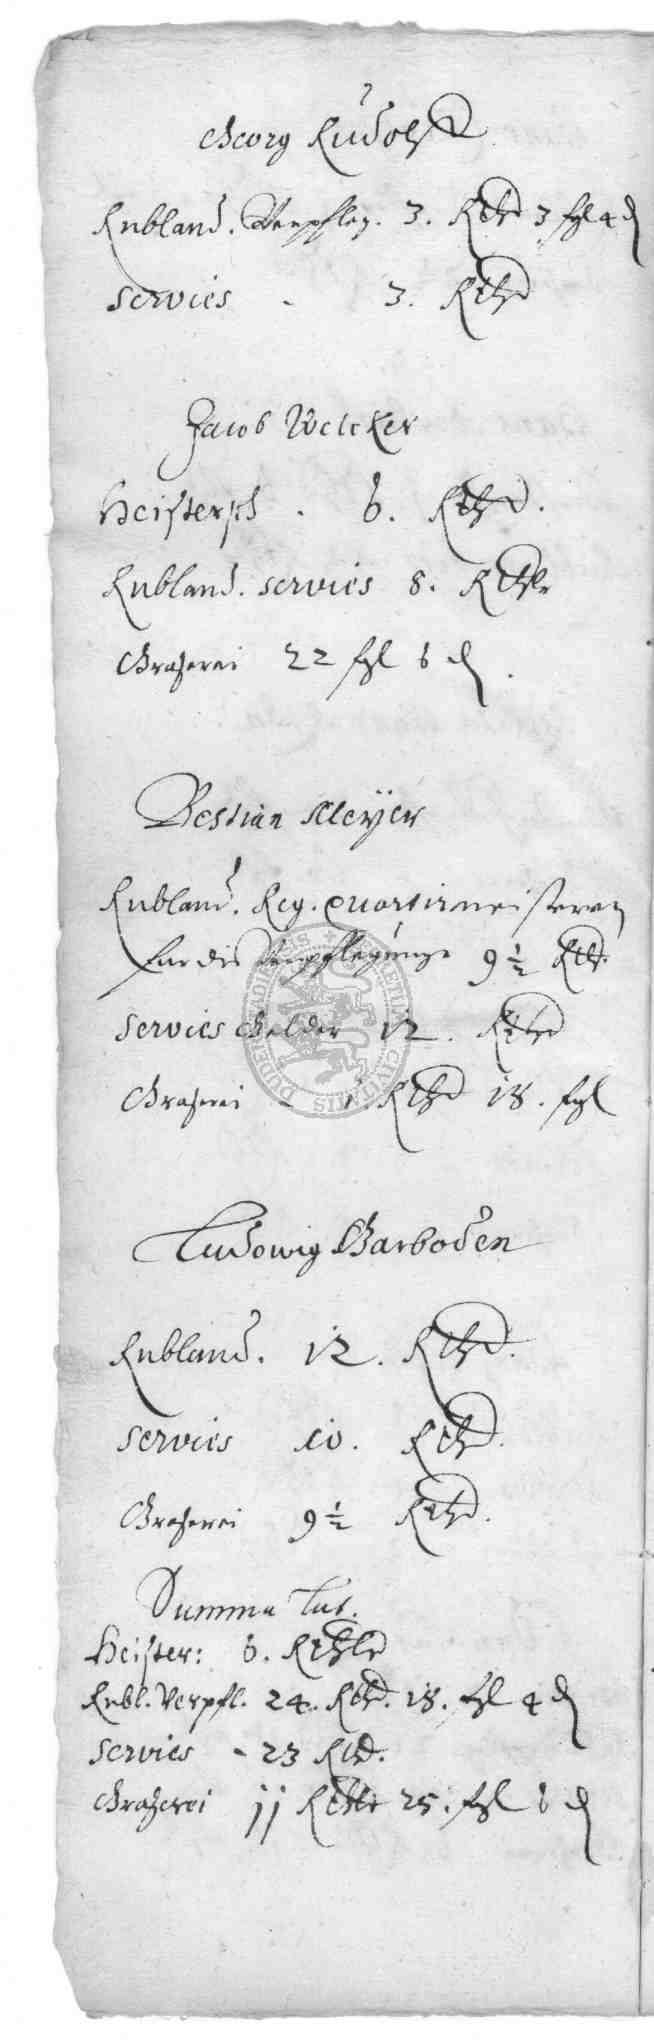 Georg Rudolff
Rubland. Verpfleg. 3. Rthlr 3 sgl 4 d
Servies - 3. Rthlr
Jacob Welcker
Heistersch . 6. Rthlr.
Rubland. servies 8. Rthlr
Graserei 22 sgl 6 d.
Bestian Meÿer
Rubland. Reg. quartirmeisteren
für die Verpflegunge 9 ½ Rthlr.
Servies Gelder 12. Rthlr
Graserei - 1. Rthlr 18. sgl
Ludowig Garboden
Rubland. 12. Rthlr.
Servies 10. Rthlr.
Graserei 9 ½ Rthlr.
Summa Lat.
Heister: 6. Rthlr
Rubl. Verpfl. 24. Rthlr. 18. sgl 4 d
Servies - 23 Rthlr.
Graserei 11 Rthlr 25. sgl 6 d